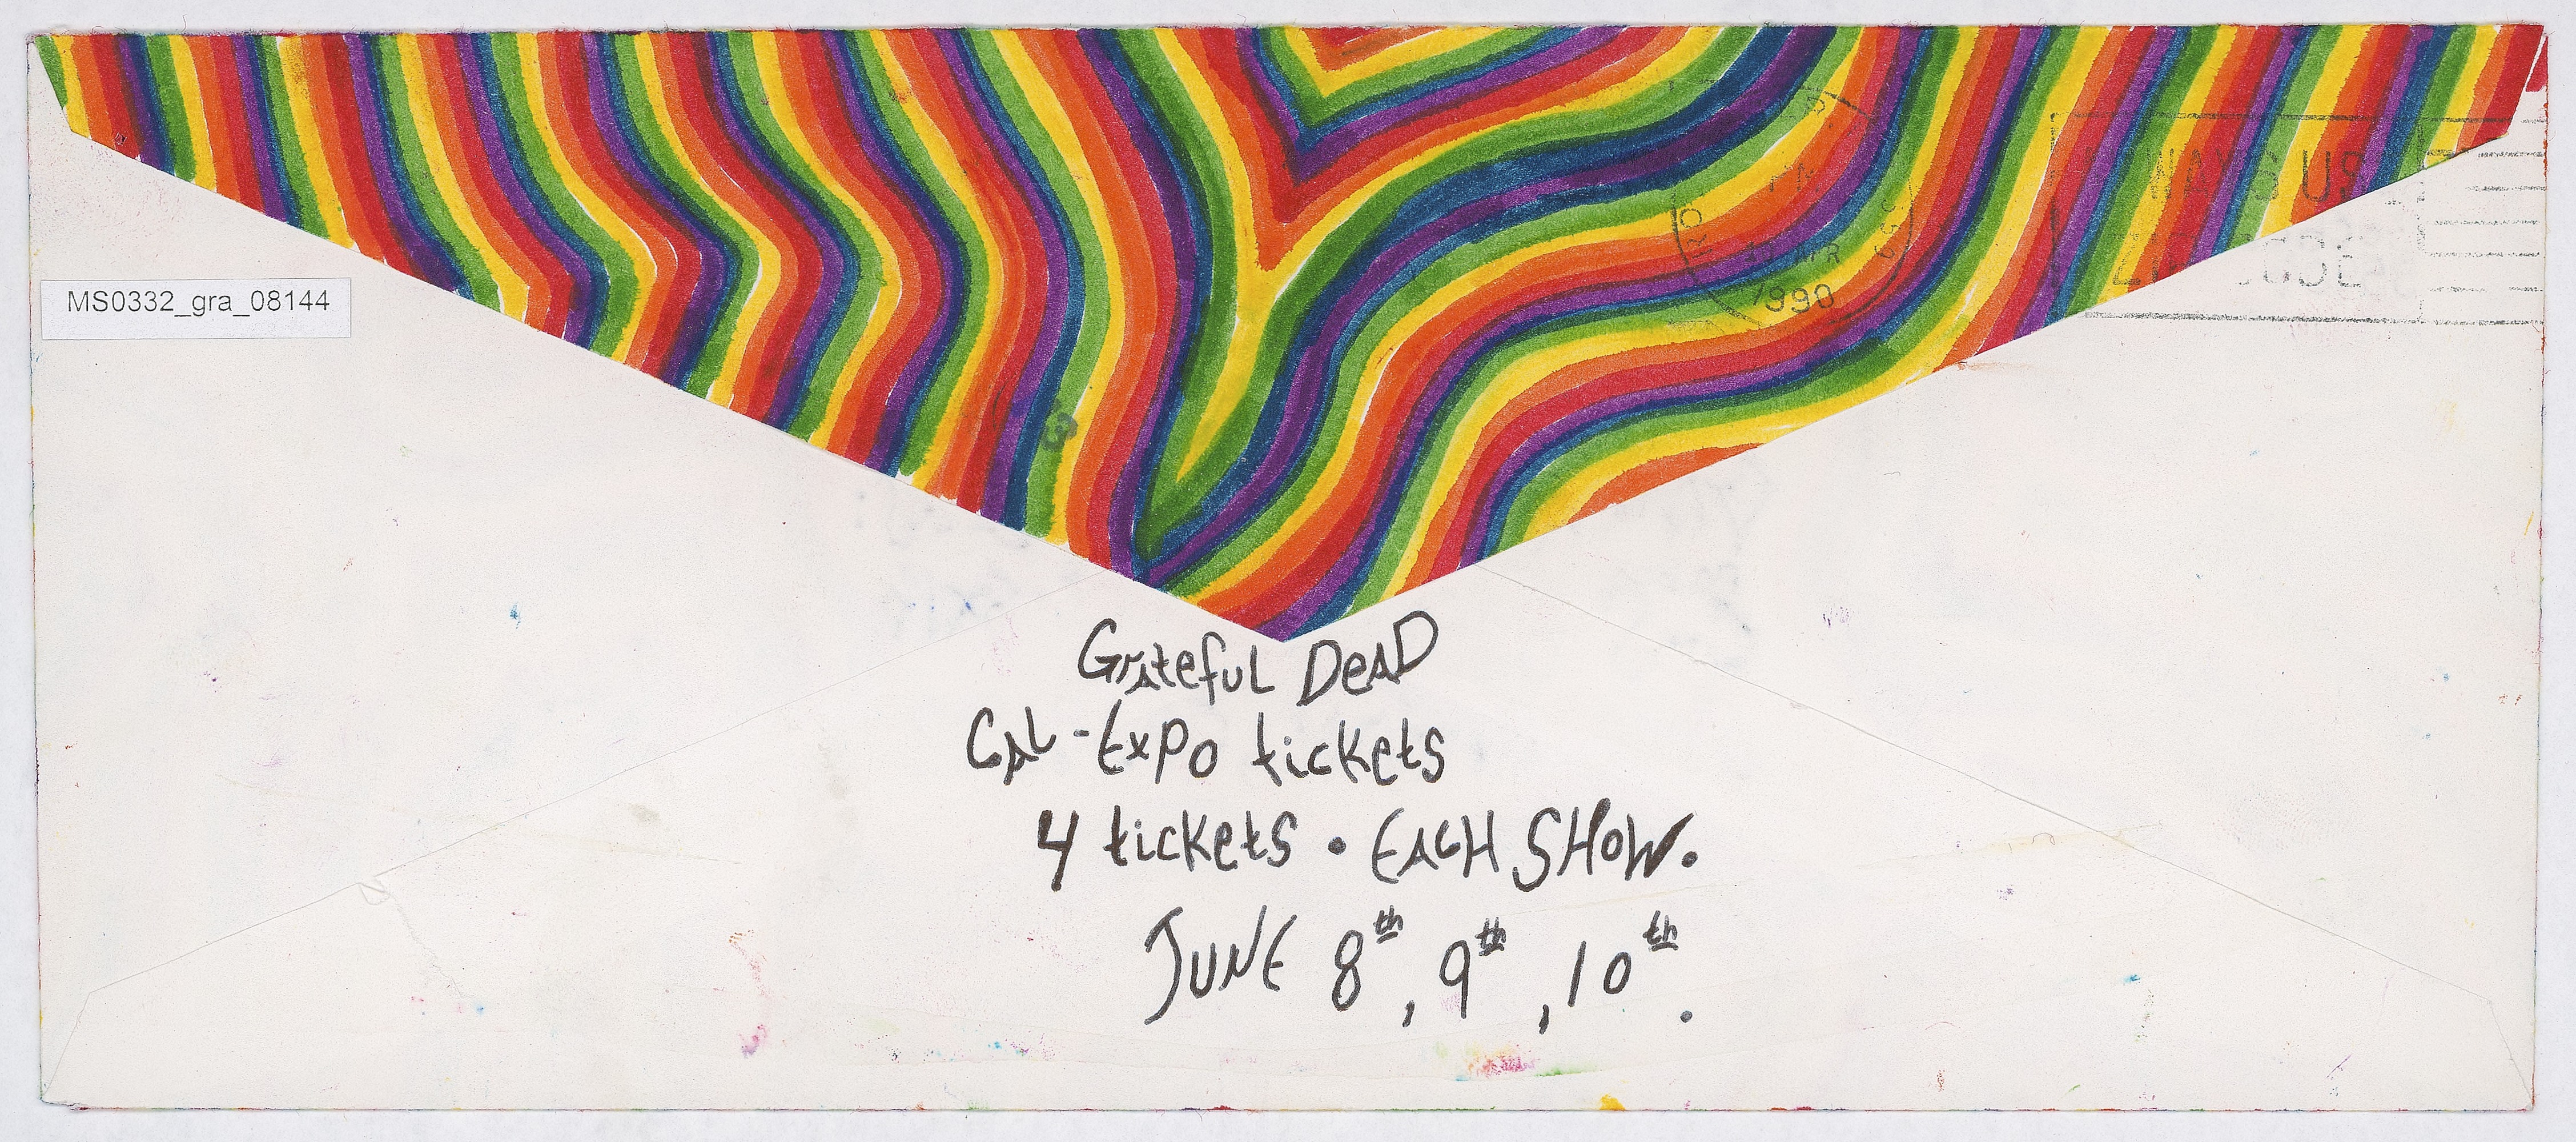 PM
1990
MS0332_gra_08144
Grateful Dead
Cal-Expo tickets
4 tickets • Each Show.
June 8th, 9th, 10th.